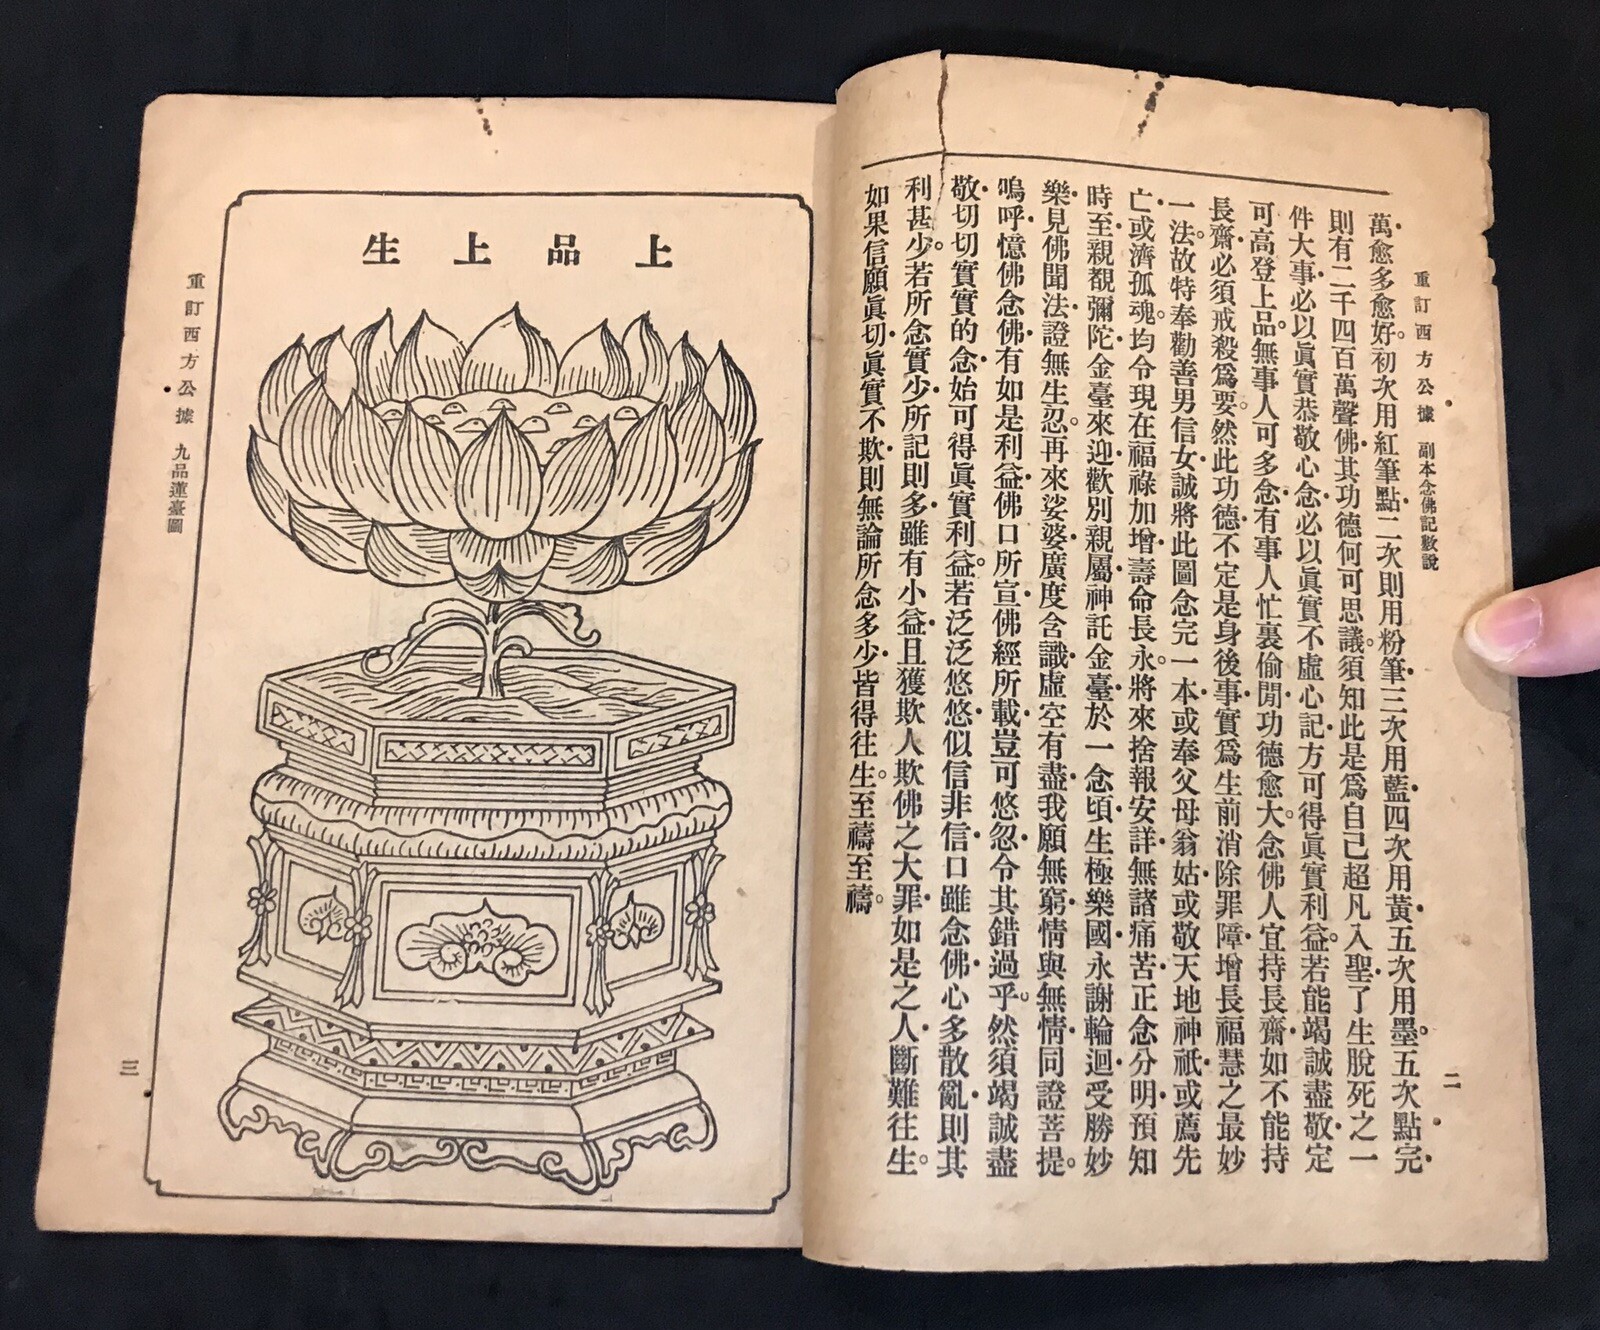 重訂西方公據 副本念佛記數說
二
萬愈多愈好。初次用紅筆點二次則用粉筆三次用藍四次用黃五次用墨。五次點完
則有二千四百萬聲佛其功德何可思議。須知此是爲自己超凡入聖了生脫死之一
件大事必以眞實恭敬心念必以眞實不虛心記方可得眞實利益。若能竭誠盡敬定
可高登上品。無事人可多念有事人忙裏偷閒功德愈大。念佛人宜持長齋如不能持
長齋必須戒殺爲要。然此功德不定是身後事實爲生前消除罪障增長福慧之最妙
一法。故特奉勸善男信女誠將此圖念完一本或奉父母翁姑或敬天地神祇或薦先
亡或濟孤魂。均令現在福祿加增壽命長永。將來捨報安詳無諸痛苦正念分明預知
時至親覩彌陀金臺來迎歡別親屬神託金臺於一念頃生極樂國永謝輪迴受勝妙
樂見佛聞法證無生忍。再來娑婆廣度含識虛空有盡我願無窮情與無情同證菩提。
嗚呼憶佛念佛有如是利益佛口所宣佛經所載豈可悠忽令其錯過乎。然須竭誠盡
敬切切實實的念始可得眞實利益。若泛泛悠悠似信非信口雖念佛心多散亂則其
利甚少。若所念實少所記則多雖有小益且獲欺人欺佛之大罪如是之人斷難往生。
如果信願眞切眞實不欺則無論所念多少皆得往生。至禱至禱。
上品上生
重訂西方公據 九品蓮臺圖
三